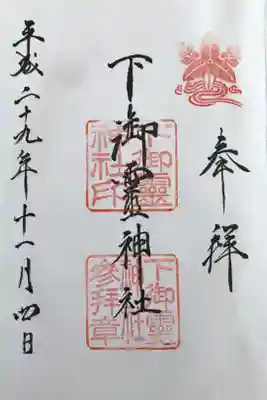 奉拝
下御靈神社
下御靈神社印
下御靈神社參拝章
平成二十九年十一月四日